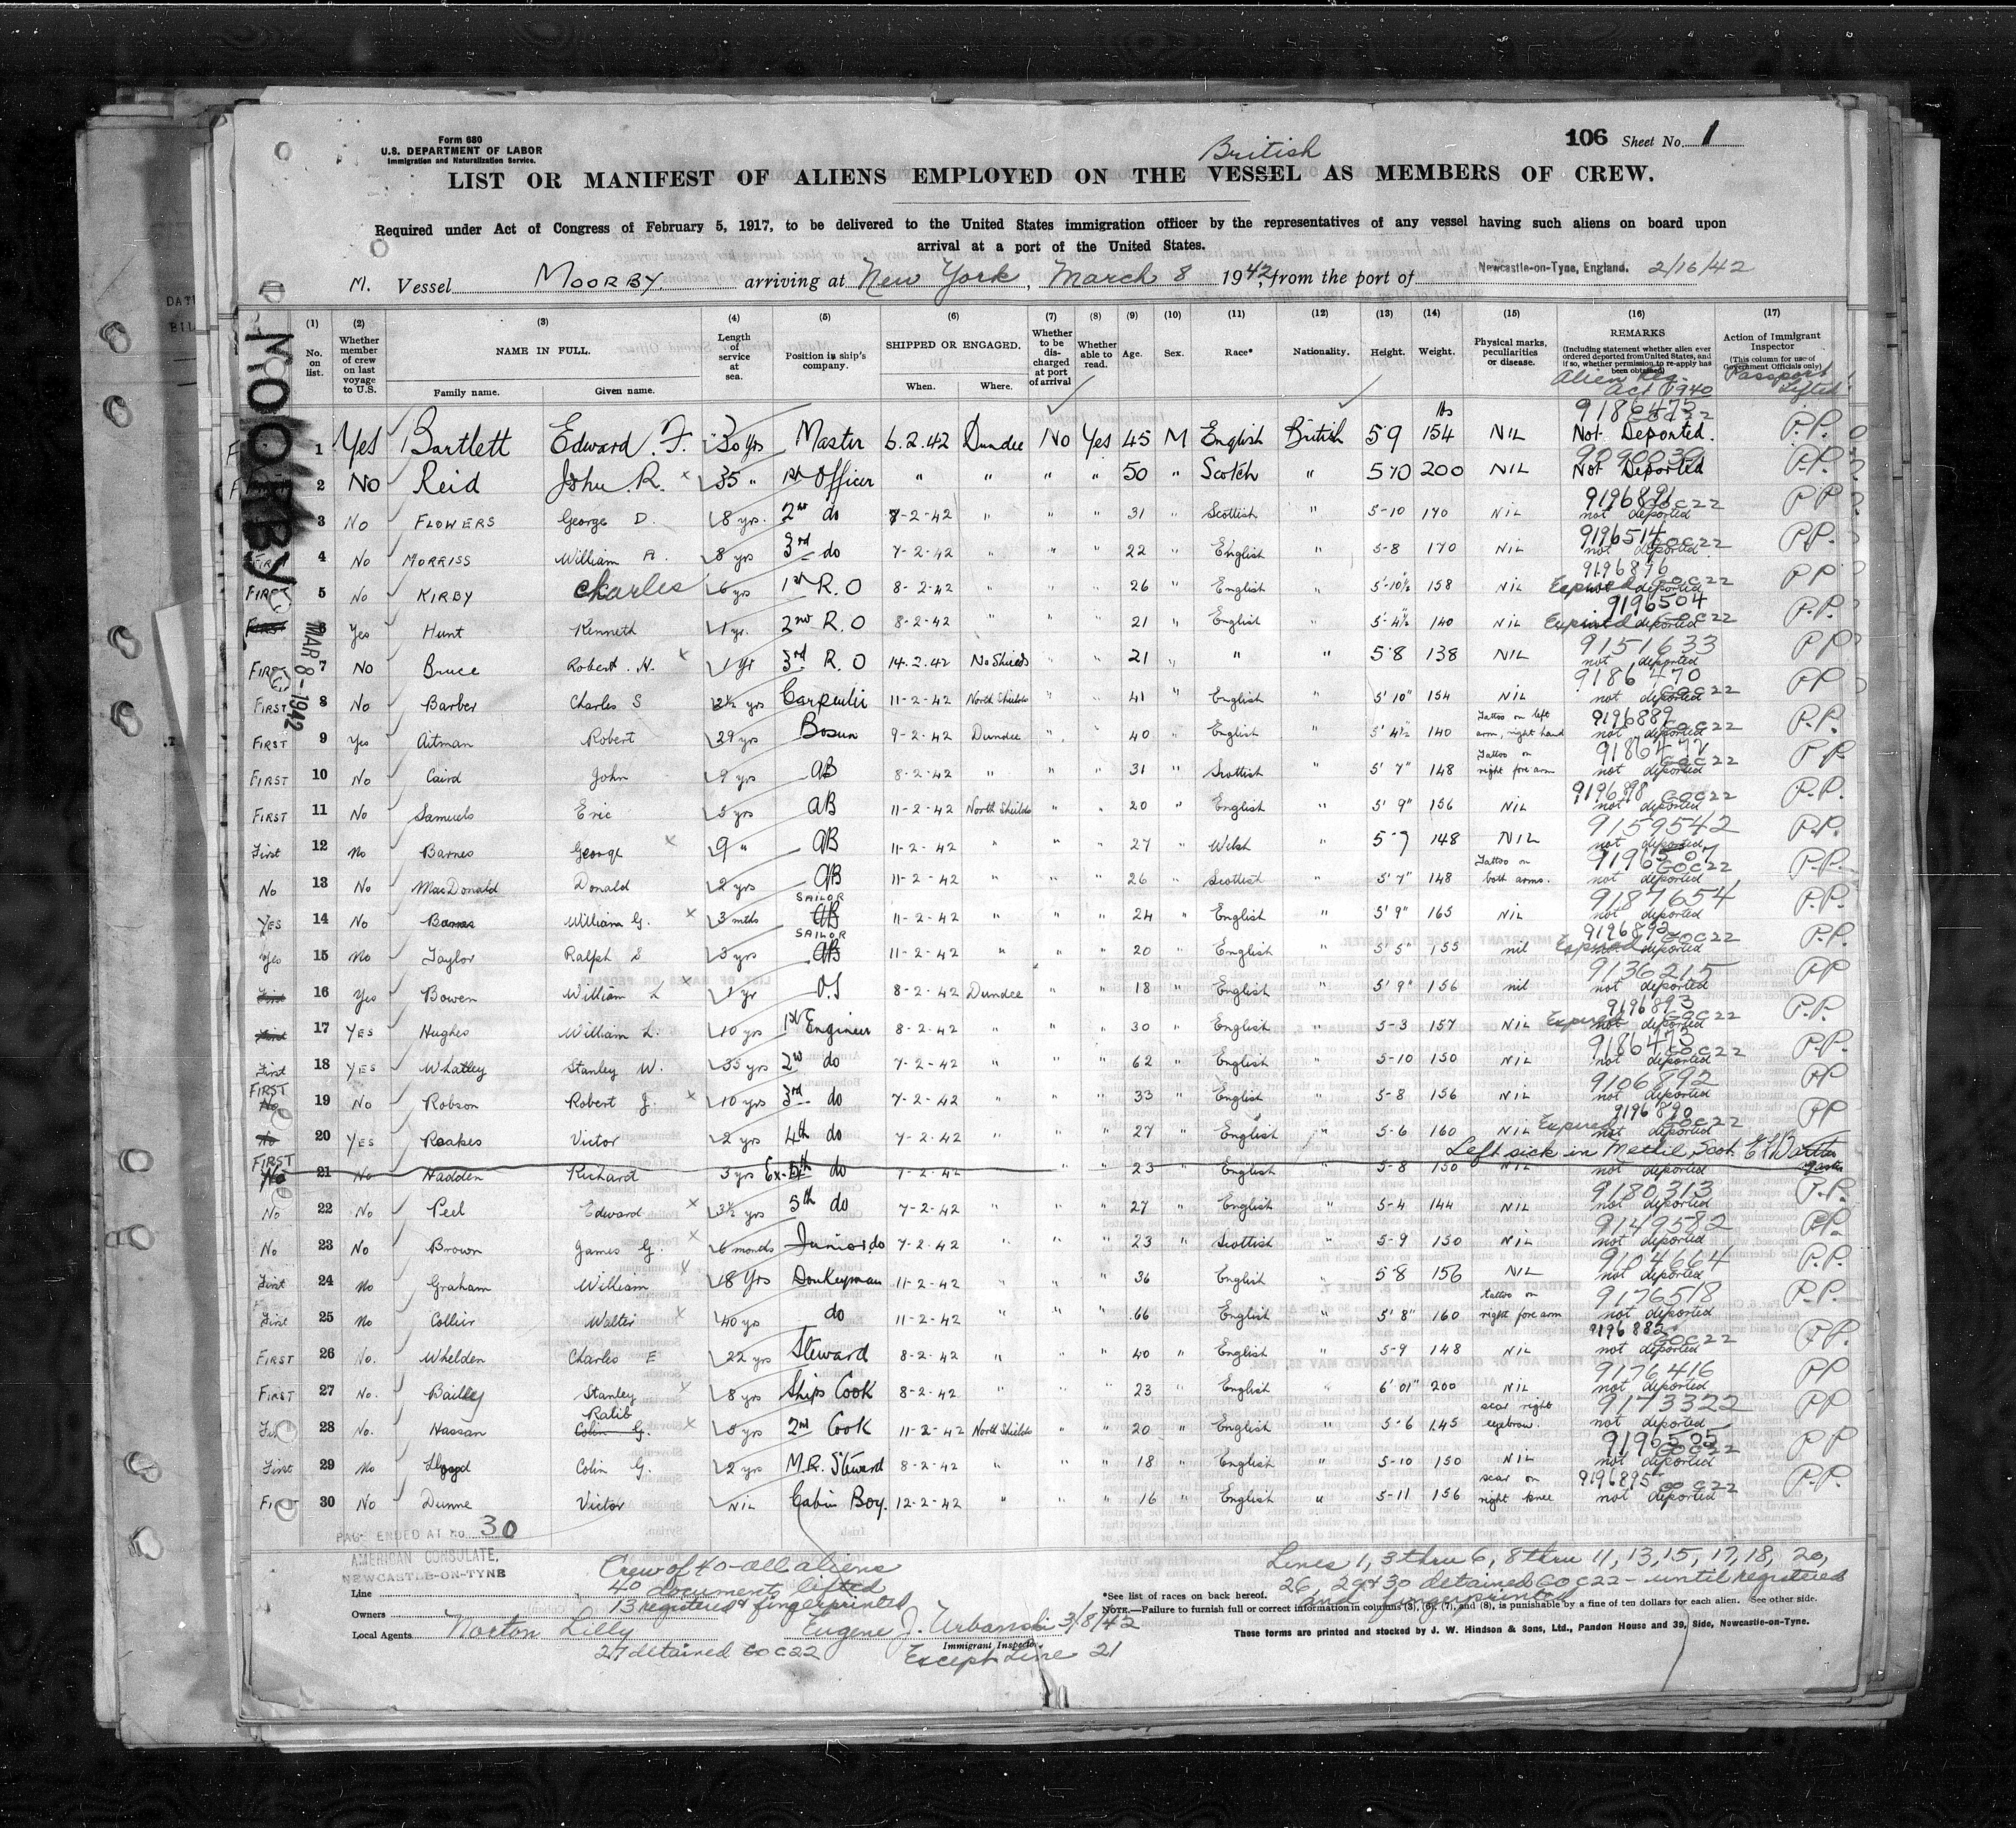 Form 680
U.S. DEPARTMENT OF LABOR
Immigration and Naturalization Service.
106 Sheet No. 1
British
LIST OR MANIFEST OF ALIENS EMPLOYED ON THE VESSEL AS MEMBERS OF CREW.
Required under Act of Congress of February 5, 1917, to be delivered to the United States immigration officer by the representatives of any vessel having such aliens on board upon
arrival at a port of the United States.
M. Vessel MOORBY. arriving at New York, March 8 1942, from the port of Newcastle-on-Tyne, England. 2/16/42
MOORBY
MAR 8-1942
(1) (2) (3) (4) (5) (6) (7) (8) (9) (10) (11) (12) (13) (14) (15) (16) (17)
No. on list. Whether member of crew on last voyage to U.S. NAME IN FULL. Family name. Given name. Length of service at sea. Position in ship's company. SHIPPED OR ENGAGED. When. Where. Whether to be discharged at port of arrival Whether able to read. Age. Sex. Race* Nationality. Height. Weight. Physical marks, peculiarities or disease. REMARKS (Including statement whether alien ever ordered deported from United States, and if so, whether permission to re-apply has been obtained) Action of Immigrant Inspector (This column for use of Government Officials only)
Alien Reg. Act 1940 Passport Lifted
1 Yes Bartlett Edward F. 30 yrs Master 6.2.42 Dundee No Yes 45 M English British 5 9 154 lbs NIL 9186475 Not Deported. P.P.
2 No Reid John R. x 35 " 1st Officer " " " " 50 " Scotch " 5 10 200 NIL 9090030 Not Deported P.P.
3 No FLOWERS George D. 8 yrs. 2nd do 7-2-42 " " " 31 " Scottish " 5-10 170 NIL 9196891 COC22 not deported PP
FIRST 4 No MORRISS William A. 8 yrs 3rd do 7-2-42 " " " 22 " English " 5-8 170 NIL 9196514 COC22 not deported P.P.
FIRST 5 No KIRBY Charles 6 yrs 1st R.O 8-2-42 " " " 26 " English " 5-10½ 158 NIL 9196896 Expired COC22 not deported PP
FIRST 6 Yes Hunt Kenneth 1 yr. 2nd R.O 8-2-42 " " " 21 " English " 5-4½ 140 NIL 9196504 Expired COC22 not deported P.P.
FIRST 7 No Bruce Robert H. x 1 yr 3rd R.O 14.2.42 No Shields " " 21 " " " 5 8 138 NIL 9151633 not deported PP
FIRST 8 No Barber Charles S 2½ yrs Carpenter 11-2-42 North Shields " " 41 " English " 5' 10" 154 NIL 9186470 COC22 not deported PP
FIRST 9 Yes Aitman Robert 29 yrs Bosun 9-2-42 Dundee " " 40 " English " 5' 4½" 140 Tattoo on left arm, right hand 9196889 COC22 not deported P.P.
FIRST 10 No Caird John 9 yrs AB 8-2-42 " " " 31 " Scottish " 5' 7" 148 Tattoo on right fore arm 9186472 COC22 not deported P.P.
FIRST 11 No Samuels Eric 5 yrs AB 11-2-42 North Shields " " 20 " English " 5' 9" 156 NIL 9196898 COC22 not deported P.P.
First 12 No Barnes George x 9 " AB 11-2-42 " " " 27 " Welsh " 5-7 148 NIL 9159542 not deported P.P.
No 13 No MacDonald Donald 2 yrs AB 11-2-42 " " " 26 " Scottish " 5' 7" 148 Tattoo on both arms. 9196507 COC22 not deported P.P.
YES 14 No William G. x 3 mths SAILOR AB 11-2-42 " " " 24 " English " 5' 9" 165 NIL 9187654 not deported P.P.
Yes 15 No Taylor Ralph S 3 yrs SAILOR AB 11-2-42 " " " 20 " English " 5' 5" 155 nil 9196892 Expired COC22 not deported P.P.
First 16 Yes Bowen William L x 1 yr O.S 8-2-42 Dundee " " 18 " English " 5' 9" 156 nil 9136215 not deported PP
First 17 YES Hughes William L. 10 yrs 1st Engineer 8-2-42 " " " 30 " English " 5-3 157 NIL 9196893 Expired COC22 not deported P.P.
First 18 YES Whatley Stanley W. 35 yrs 2nd do 7-2-42 " " " 62 " English " 5-10 150 NIL 9186473 COC22 not deported P.P.
FIRST No 19 No Robson Robert J. x 10 yrs 3rd do 7-2-42 " " " 33 " English " 5-8 156 NIL 9106892 not deported PP
No 20 YES Roakes Victor 2 yrs 4th do 7-2-42 " " " 27 " English " 5-6 160 NIL 9196890 Expired COC22 not deported PP
Left sick in Methil, Scot. E F Bartlett Master
FIRST No 21 No Hadden Richard 3 yrs Ex 5th do 7-2-42 " " " 23 " English " 5-8 150 NIL not deported
No 22 No Peel Edward x 3½ yrs 5th do 7-2-42 " " " 27 " English " 5-4 144 NIL 9180313 not deported P.P.
No 23 No Brown James G. x 6 months Junior do 7-2-42 " " " 23 " Scottish " 5-9 150 NIL 9149582 not deported P.P.
First 24 No Graham William x 18 yrs Donkeyman 11-2-42 " " " 36 " English " 5 8 156 NIL 9104664 not deported P.P.
First 25 No Collier Walter x 40 yrs do 11-2-42 " " " 66 " English " 5' 8" 160 tattoo on right fore arm 9176518 not deported P.P.
FIRST 26 No. Whelden Charles E 22 yrs Steward 8-2-42 " " " 40 " English " 5-9 148 NIL 9196882 COC22 not deported P.P.
FIRST 27 No. Bailey Stanley x 8 yrs Ships Cook 8-2-42 " " " 23 " English " 6' 01" 200 NIL 9176416 not deported PP
28 No. Hassan Ratib Colin G. x 5 yrs 2nd Cook 11-2-42 North Shields " " 20 " English " 5-6 145 scar right eyebrow. 9173322 not deported PP
First 29 No Lloyd Colin G. 2 yrs M.R. Steward 8-2-42 " " " 18 " English " 5-10 150 NIL 9196505 COC22 not deported PP
First 30 No Dunne Victor NIL Cabin Boy. 12-2-42 " " " 16 " English " 5-11 156 scar on right knee 9196895 COC22 not deported P.P.
PAGE ENDED AT No. 30
AMERICAN CONSULATE,
NEWCASTLE-ON-TYNE
Crew of 40 - all aliens
40 documents lifted
13 registered & fingerprinted
Lines 1, 3 thru 6, 8 thru 11, 13, 15, 17, 18, 20,
26, 29 & 30 detained COC22 - until registered
and fingerprinted
Line
Owners
Local Agents Norton Lilly
Eugene J. Urbanski 3/8/42
Immigrant Inspector.
27 detained COC22 Except Line 21
*See list of races on back hereof.
NOTE.—Failure to furnish full or correct information in columns (3), (6), (7), and (8), is punishable by a fine of ten dollars for each alien. See other side.
These forms are printed and stocked by J. W. Hindson & Sons, Ltd., Pandon House and 39, Side, Newcastle-on-Tyne.